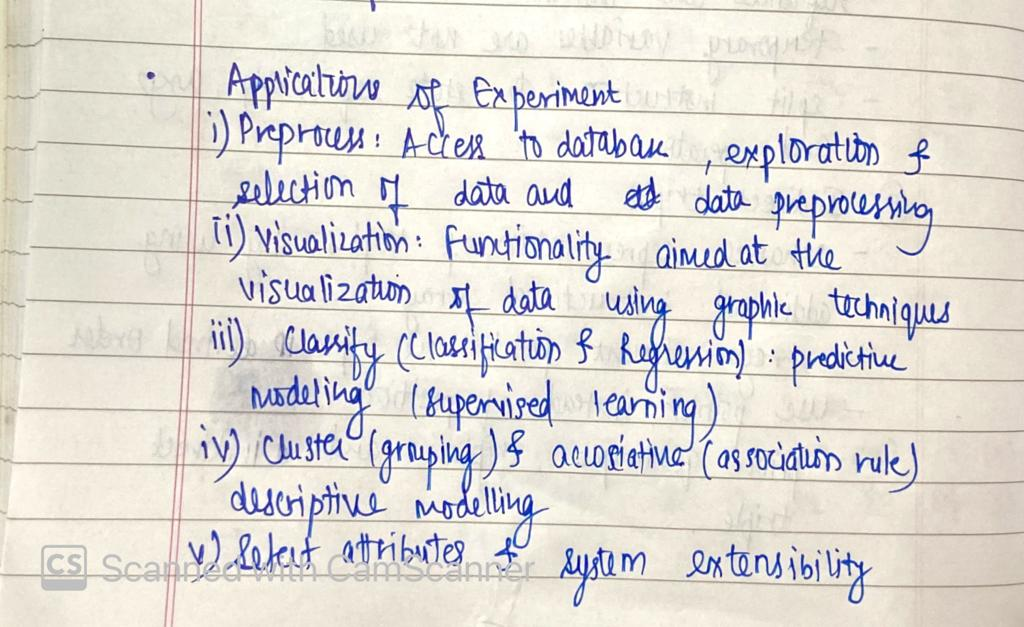 • Applications of Experiment
i) Preprocess: Access to database, exploration &
selection of data and data preprocessing
ii) Visualization: Functionality aimed at the
visualization of data using graphic techniques
iii) Classify (Classification & Regression): predictive
modeling (supervised learning)
iv) Cluster (grouping) & accosiative (association rule)
descriptive modelling
v) Select attributes & system extensibility
CS Scanned with CamScanner